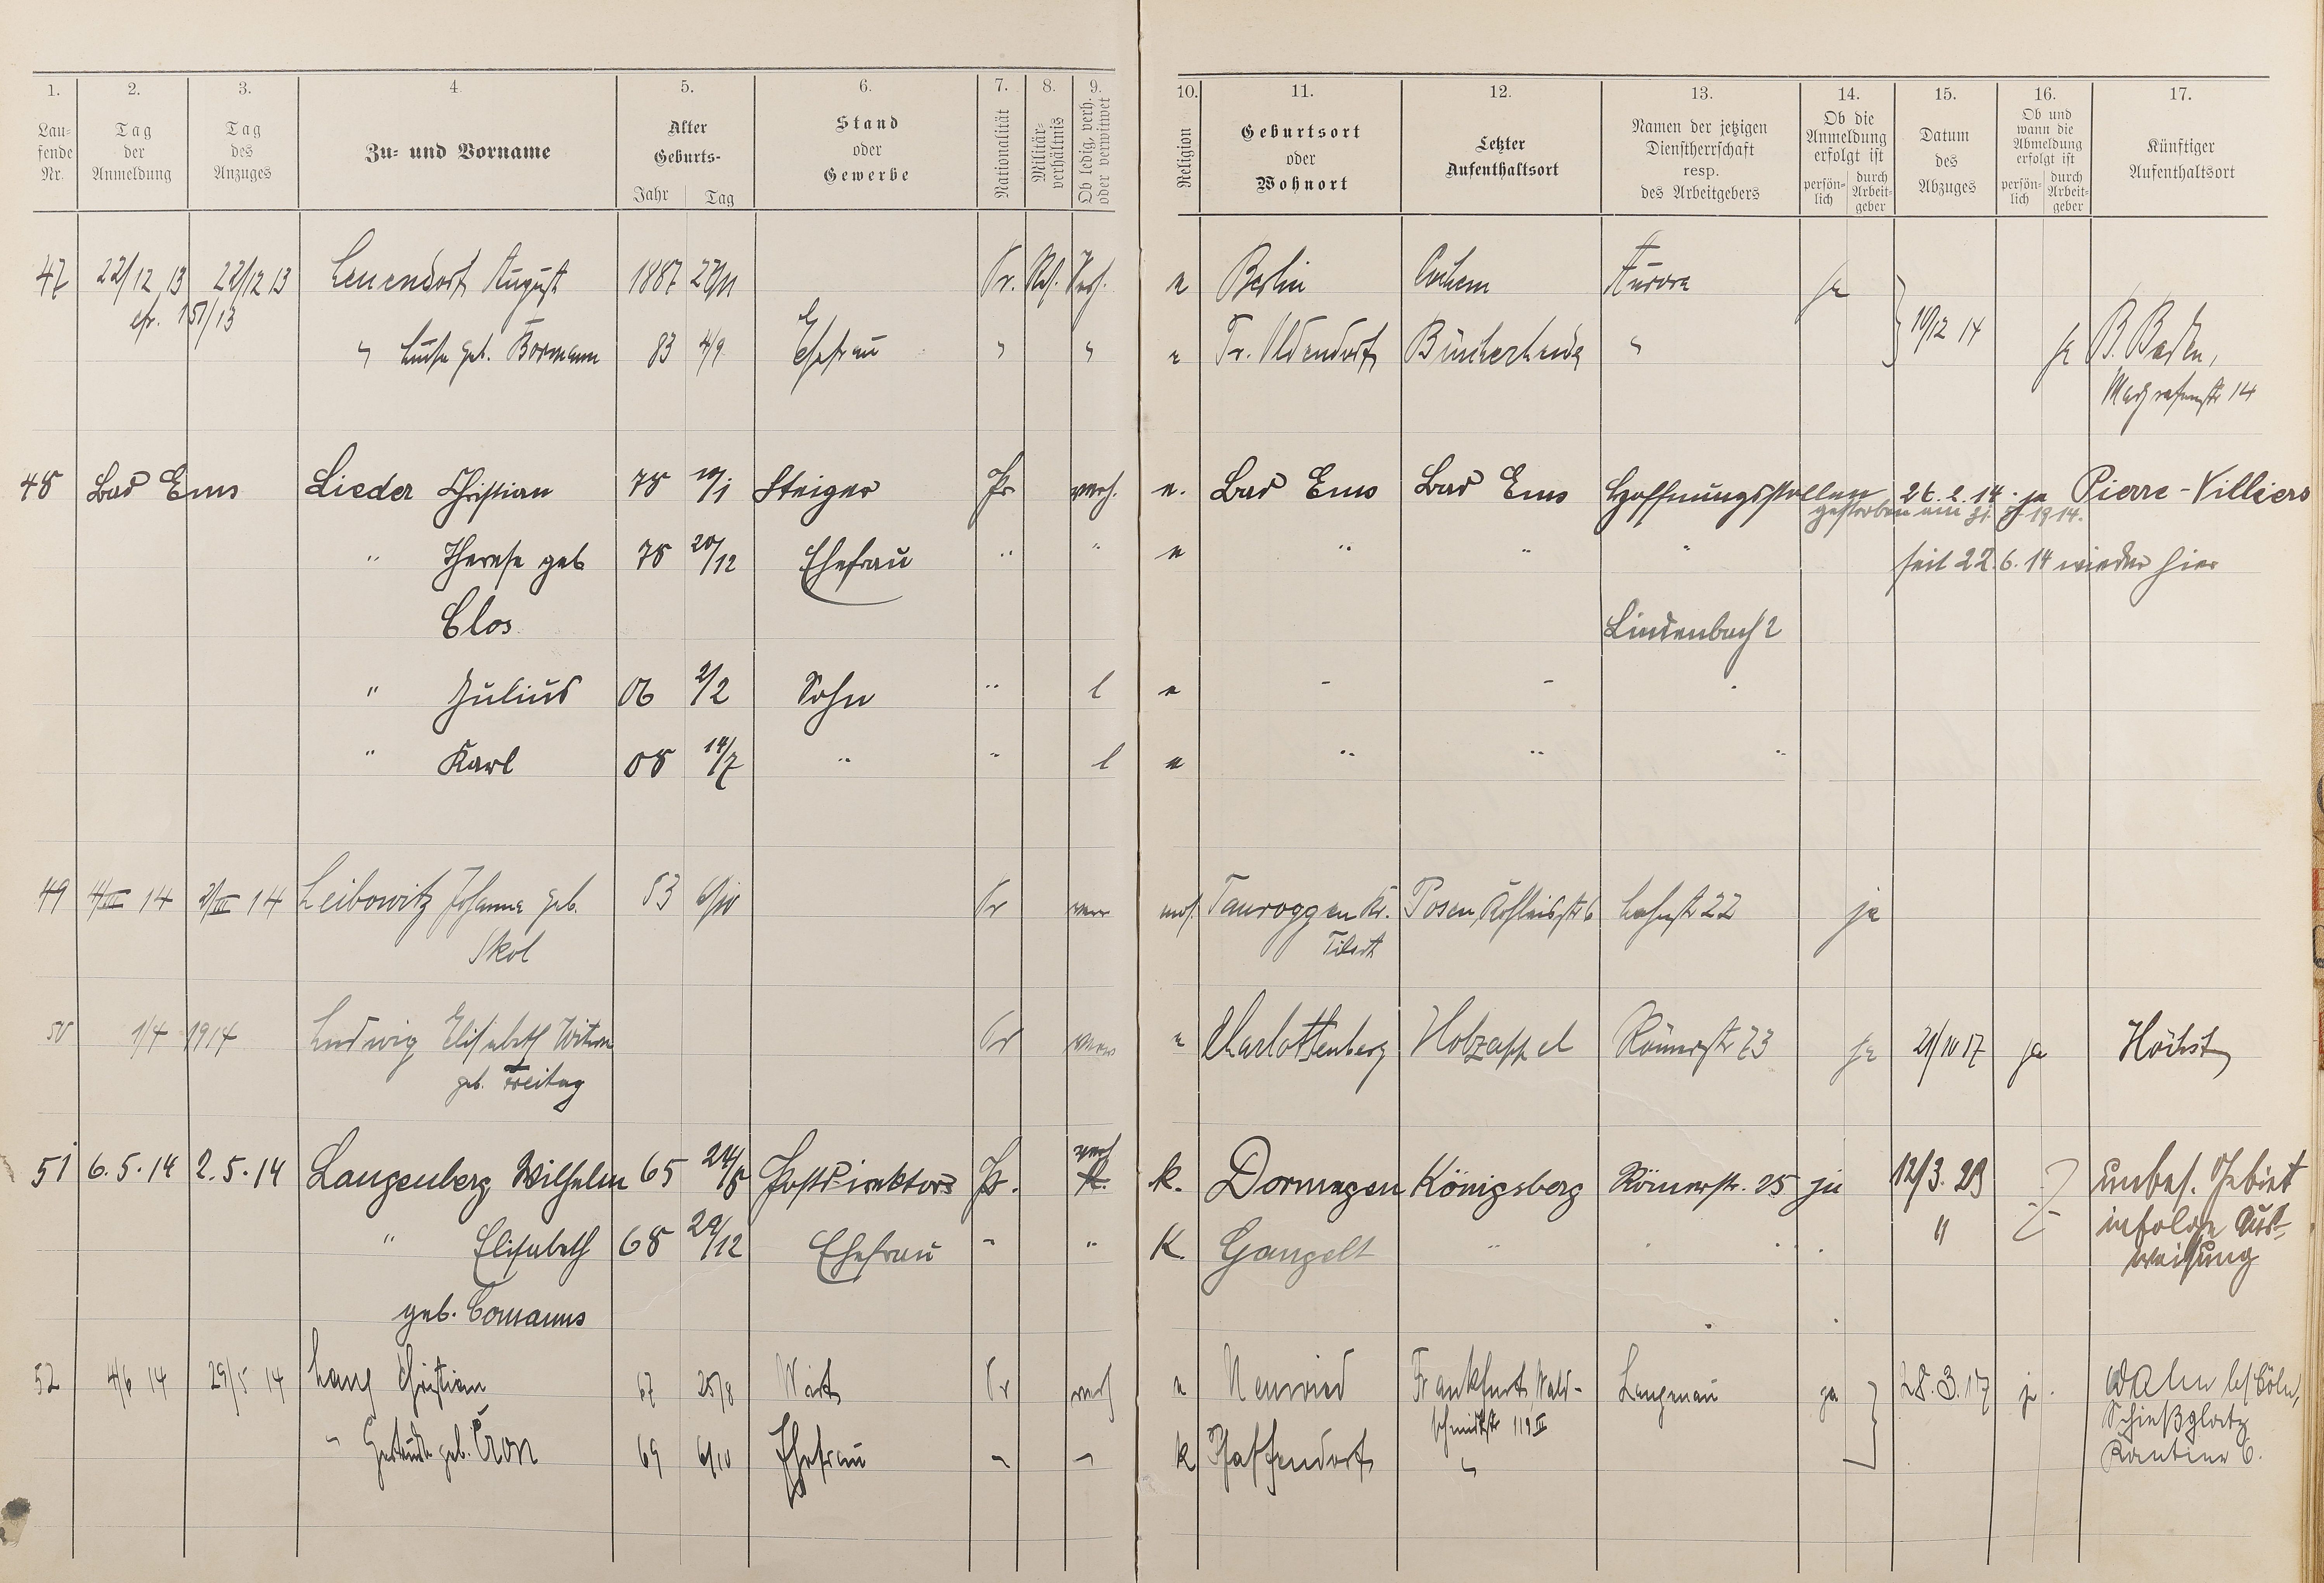 1. 2. 3. 4. 5. 6. 7. 8. 9. 10. 11. 12. 13. 14. 15. 16. 17.
Lau-fende Nr. Tag der Anmeldung Tag des Anzuges Zu- und Vorname Alter Geburts- Jahr Tag Stand oder Gewerbe Nationalität Militär-verhältnis Ob ledig, verh. oder verwitwet Religion Geburtsort oder Wohnort Letzter Aufenthaltsort Namen der jetzigen Dienstherrschaft resp. des Arbeitgebers Ob die Anmeldung erfolgt ist persön-lich durch Arbeit-geber Datum des Abzuges Ob und wann die Abmeldung erfolgt ist persön-lich durch Arbeit-geber Künftiger Aufenthaltsort
47 22/12 13 22/12 13 August 1887 Pr. Verh. e Berlin Cochem Aurora ja
cfr. 151/13
geb. Bormann 83 4/9 Ehefrau " " e Pr. Oldendorf " 10/12 14 ja B. Baden,
14
48 Bad Ems Lieder Christian 78 Steiger Pr verh. e. Bad Ems Bad Ems Hoffnungsstollen 26.2.14. ja Pierre-Villiers
gestorben am 31. 1914.
" Therese geb 78 20/12 Ehefrau " " e " " " seit 22.6.14 wieder hier
Clos
Lindenbach 2
" Julius 06 2/2 Sohn " l e " " "
" Karl 08 14/7 " " l e " " "
49 4/III 14 2/III 14 Leibowitz Johanna geb. 53 Pr verw mos. Tauroggen Kr. Posen, 6 Lahnstr 22 ja
Skol Tilsit
50 1/4 1914 Ludwig Elisabeth Witwe Pr verw e Charlottenberg Holzappel Römerstr 73 ja 21/10 17 ja Höchst
geb. Freitag
51 6.5.14 2.5.14 Langenberg Wilhelm 65 24/8 Postdirektor Pr. verh k. Dormagen Königsberg Römerstr. 25 ja 12/3. 23 ? unbes. Gebiet
" Elisabeth 68 29/12 Ehefrau " " K Gangelt " " " " infolge Aus-
weisung
geb. Comanns
52 4/6 14 29/5 14 Lang Christian 67 25/8 Wirt Pr verh e Neuwied Frankfurt, Wald- Langenau ja 28.3.17 ja. Wahn b/ Cöln,
schmidtstr 119 III Schießplatz
" Gertrude geb. Cron 69 6/10 Ehefrau " " k Pfaffendorf " Kantine 6.